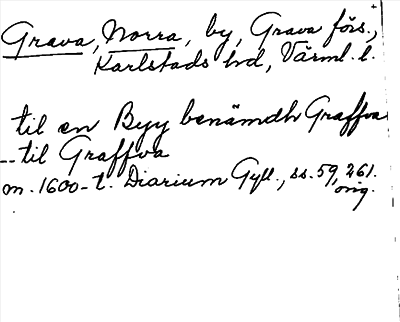 Grava, Norra, by, Grava förs.,
Karlstads hd, Värml. l.
til en Byy benämdh Graffva
-- til Graffva
m. 1600-t. Diarium Gyll., ss. 59, 261.
orig.